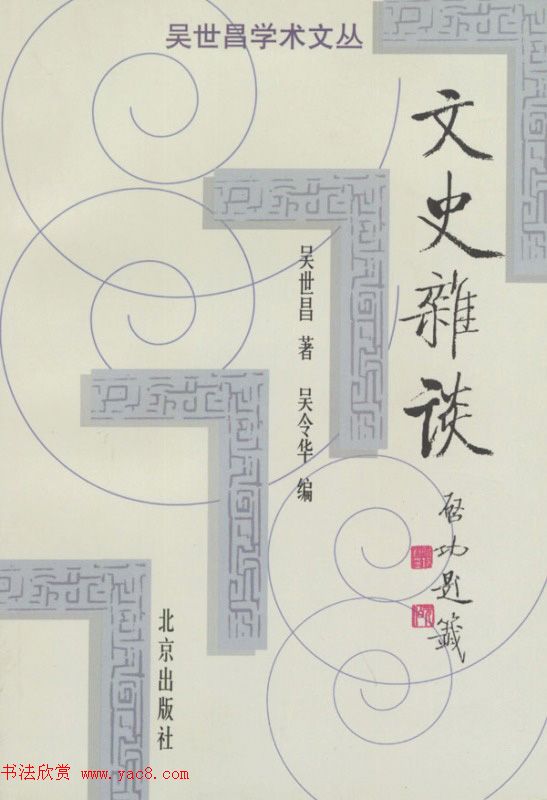 吴世昌学术文丛
文史雜谈
启功题籤
吴世昌 著 吴令华 编
北京出版社
书法欣赏 www.yac8.com